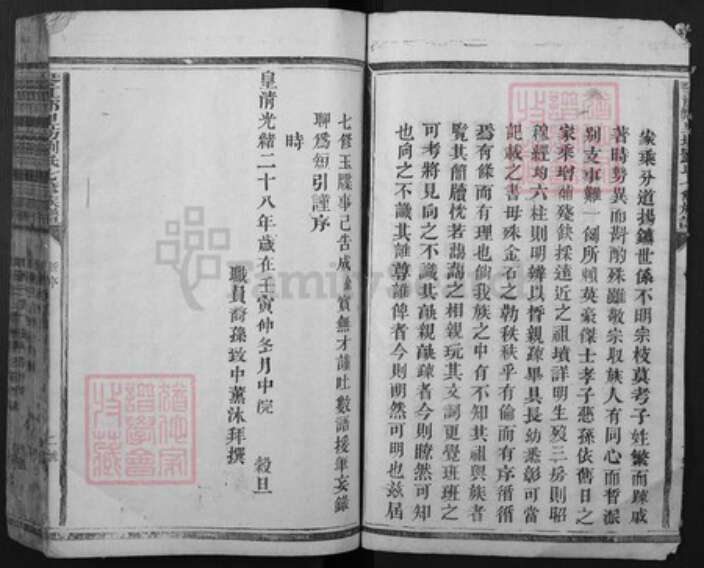 家乘分道揚鑣世係不明宗枝莫考子姓繁而疎戚
著時勢異而斟酌殊雖敬宗收族人有同心而晳派
別支事難一僩所賴英豪傑士孝子慈孫依舊日之
家乘增補殘缺採遠近之祖墳詳明生歿三房則昭
穆經均六柱則明韓以晳親疎畢具長幼悉彰可當
記載之書毋殊金石之勒秩秩乎有倫而有序循循
焉有條而有理也倘我族之中有不知其祖與族者
覽其簡牘恍若藹藹之相親玩其文詞更覺班班之
可考將見向之不識其孰親孰疎者今則瞭然可知
也向之不識其誰尊誰俾者今則朗然可明也茲屆
七修玉牒事已告成 實無才謹吐數語援筆妄錄
聊爲短引謹序
時
皇清光緒二十八年歲在壬寅仲冬月中浣 穀旦
職員裔孫致中薰沐拜撰
道他家
譜學會
收藏
FamilySearch